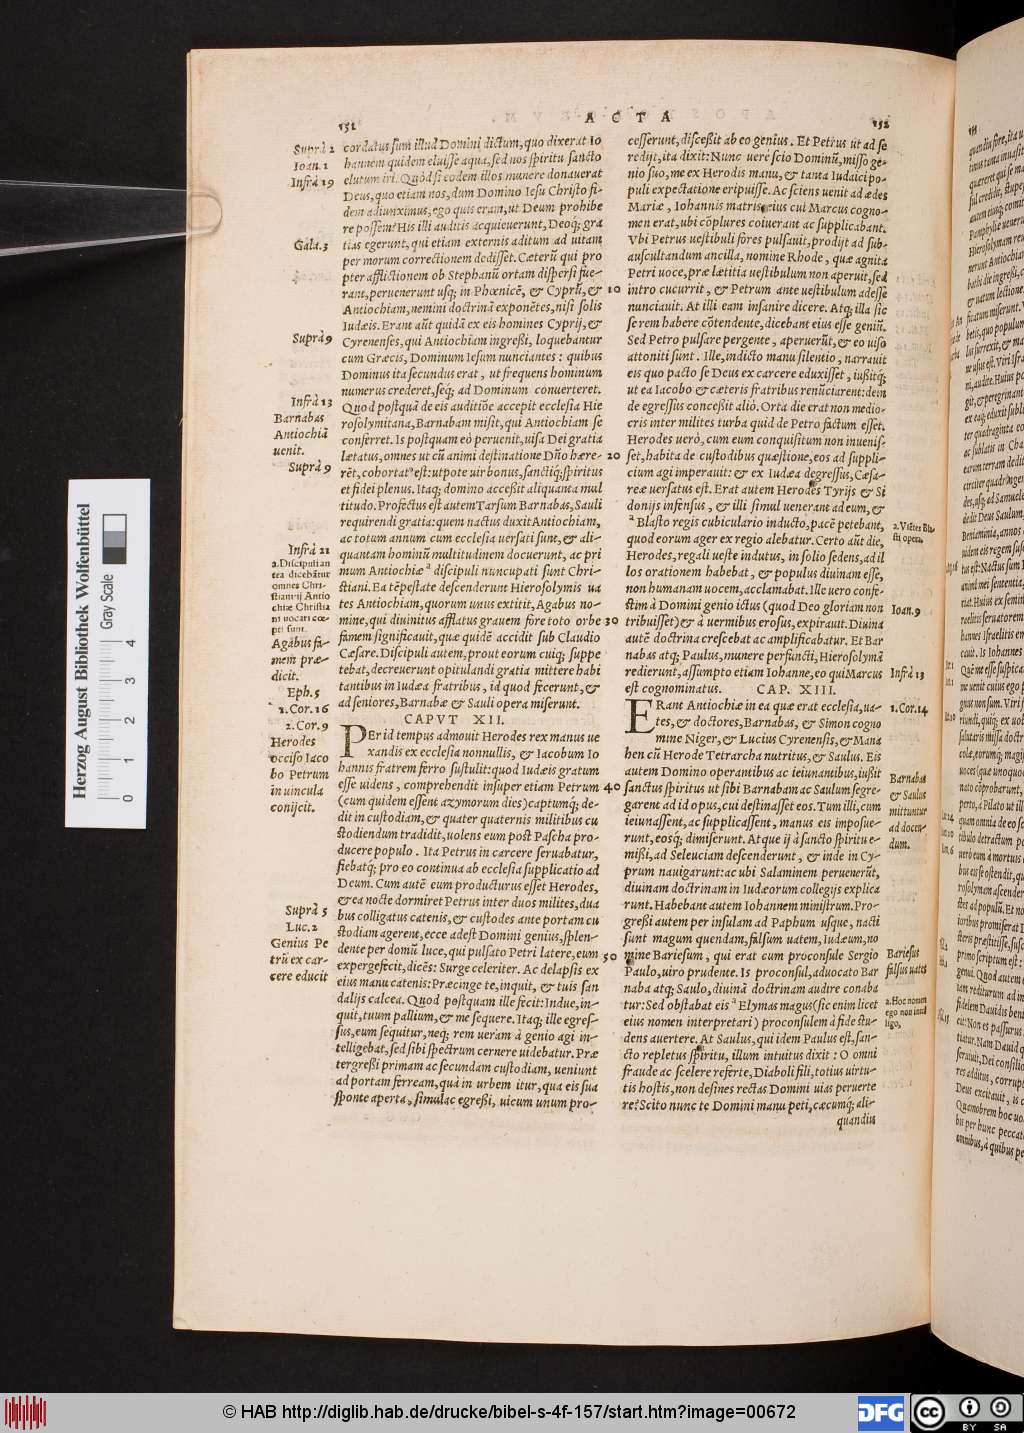 151
ACTA
152
Suprà 2
Ioan. 1
Infrà 19
Gala. 3
Suprà 9
Infrà 13
Barnabas
Antiochiã
uenit.
Suprà 9
Infrà 21
a. Discipuli an
tea dicebãtur
omnes Chri-
stiani: ij Antio
chiæ Christia
ni uocari cœ-
pti sunt.
Agabus fa-
mem præ-
dicit.
Eph. 5
1. Cor. 16
2. Cor. 9
Herodes
occiso Iaco
bo Petrum
in uincula
conijcit.
Suprà 5
Luc. 2
Genius Pe
trũ ex car-
cere educit
cordatus sum illud Domini dictum, quo dixerat Io
hannem quidem eluisse aqua, sed uos spiritu sancto
elutum iri. Quòd si eodem illos munere donauerat
Deus, quo etiam nos, dum Domino Iesu Christo fi-
dem adiunximus, ego quis eram, ut Deum prohibe
re possem? His illi auditis acquieuerunt, Deoq; gra
tias egerunt, qui etiam externis aditum ad uitam
per morum correctionem dedisset. Cæterũ qui pro
pter afflictionem ob Stephanũ ortam dispersi fue-
rant, peruenerunt usq; in Phœnicẽ, & Cyprũ, &
Antiochiam, nemini doctrinã exponẽtes, nisi solis
Iudæis. Erant aũt quidã ex eis homines Cyprij, &
Cyrenenses, qui Antiochiam ingreßi, loquebantur
cum Græcis, Dominum Iesum nunciantes: quibus
Dominus ita secundus erat, ut frequens hominum
numerus crederet, seq; ad Dominum conuerteret.
Quod postquã de eis auditiõe accepit ecclesia Hie
rosolymitana, Barnabam misit, qui Antiochiam se
conferret. Is postquam eò peruenit, uisa Dei gratia
lætatus, omnes ut cũ animi destinatione Dño hære-
rẽt, cohortatꝰ est: utpote uir bonus, sanctiq; spiritus
et fidei plenus. Itaq; domino acceßit aliquanta mul
titudo. Profectus est autem Tarsum Barnabas, Sauli
requirendi gratia: quem nactus duxit Antiochiam,
ac totum annum cum ecclesia uersati sunt, & ali-
quantam hominũ multitudinem docuerunt, ac pri
mum Antiochiæ a discipuli nuncupati sunt Chri-
stiani. Ea tẽpestate descenderunt Hierosolymis ua
tes Antiochiam, quorum unus extitit, Agabus no-
mine, qui diuinitus afflatus grauem fore toto orbe
famem significauit, quæ quidẽ accidit sub Claudio
Cæsare. Discipuli autem, prout eorum cuiq; suppe
tebat, decreuerunt opitulandi gratia mittere habi
tantibus in Iudæa fratribus, id quod fecerunt, &
ad seniores, Barnabæ & Sauli opera miserunt.
CAPVT XII.
PEr id tempus admouit Herodes rex manus ue
xandis ex ecclesia nonnullis, & Iacobum Io
hannis fratrem ferro sustulit: quod Iudæis gratum
esse uidens, comprehendit insuper etiam Petrum
(cum quidem essent azymorum dies) captumq; de-
dit in custodiam, & quater quaternis militibus cu
stodiendum tradidit, uolens eum post Pascha pro-
ducere populo. Ita Petrus in carcere seruabatur,
fiebatq; pro eo continua ab ecclesia supplicatio ad
Deum. Cum autẽ eum producturus esset Herodes,
& ea nocte dormiret Petrus inter duos milites, dua
bus colligatus catenis, & custodes ante portam cu
stodiam agerent, ecce adest Domini genius, splen-
dente per domũ luce, qui pulsato Petri latere, eum
expergefecit, dicẽs: Surge celeriter. Ac delapsis ex
eius manu catenis: Præcinge te, inquit, & tuis san
dalijs calcea. Quod postquam ille fecit: Indue, in-
quit, tuum pallium, & me sequere. Itaq; ille egres-
sus, eum sequitur, neq; rem ueram à genio agi in-
telligebat, sed sibi spectrum cernere uidebatur. Præ
tergreßi primam ac secundam custodiam, ueniunt
ad portam ferream, quà in urbem itur, qua eis sua
sponte aperta, simulac egreßi, uicum unum pro-
10
20
30
40
50
cesserunt, disceßit ab eo genius. Et Petrus ut ad se
redijt, ita dixit: Nunc uerè scio Dominũ, misso ge-
nio suo, me ex Herodis manu, & tanta Iudaici po-
puli expectatione eripuisse. Ac sciens uenit ad ædes
Mariæ, Iohannis matris eius cui Marcus cogno-
men erat, ubi cõplures coiuerant ac supplicabant.
Vbi Petrus uestibuli fores pulsauit, prodijt ad sub-
auscultandum ancilla, nomine Rhode, quæ agnita
Petri uoce, præ lætitia uestibulum non aperuit, sed
intro cucurrit, & Petrum ante uestibulum adesse
nunciauit. At illi eam insanire dicere. Atq; illa sic
se rem habere cõtendente, dicebant eius esse geniũ.
Sed Petro pulsare pergente, aperuerũt, & eo uiso
attoniti sunt. Ille, indicto manu silentio, narrauit
eis quo pacto se Deus ex carcere eduxisset, iußitq;
ut ea Iacobo & cæteris fratribus renũciarent: dein
de egressus conceßit aliò. Orta die erat non medio-
cris inter milites turba quid de Petro factum esset.
Herodes uerò, cum eum conquisitum non inuenis-
set, habita de custodibus quæstione, eos ad suppli-
cium agi imperauit: & ex Iudæa degressus, Cæsa-
reæ uersatus est. Erat autem Herodes Tyrijs & Si
donijs infensus, & illi simul uenerant ad eum, &
a Blasto regis cubiculario inducto, pacẽ petebant,
quod eorum ager ex regio alebatur. Certo aũt die,
Herodes, regali ueste indutus, in solio sedens, ad il
los orationem habebat, & populus diuinam esse,
non humanam uocem, acclamabat. Ille uero confe-
stim à Domini genio ictus (quod Deo gloriam non
tribuisset) & à uermibus erosus, expirauit. Diuina
autẽ doctrina crescebat ac amplificabatur. Et Bar
nabas atq; Paulus, munere perfuncti, Hierosolymã
redierunt, assumpto etiam Iohanne, eo qui Marcus
est cognominatus. CAP. XIII.
ERant Antiochiæ in ea quæ erat ecclesia, ua-
tes, & doctores, Barnabas, & Simon cogno
mine Niger, & Lucius Cyrenensis, & Mana
hen cũ Herode Tetrarcha nutritus, & Saulus. Eis
autem Domino operantibus ac ieiunantibus, iußit
sanctus spiritus ut sibi Barnabam ac Saulum segre-
garent ad id opus, cui destinasset eos. Tum illi, cum
ieiunassent, ac supplicassent, manus eis imposue-
runt, eosq; dimiserunt. Atque ij à sancto spiritu e-
mißi, ad Seleuciam descenderunt, & inde in Cy-
prum nauigarunt: ac ubi Salaminem peruenerũt,
diuinam doctrinam in Iudæorum collegijs explica
runt. Habebant autem Iohannem ministrum. Pro-
greßi autem per insulam ad Paphum usque, nacti
sunt magum quendam, falsum uatem, iudæum, no
mine Bariesum, qui erat cum proconsule Sergio
Paulo, uiro prudente. Is proconsul, aduocato Bar
naba atq; Saulo, diuinã doctrinam audire conaba
tur: Sed obstabat eis a Elymas magus (sic enim licet
eius nomen interpretari) proconsulem à fide stu-
dens auertere. At Saulus, qui idem Paulus est, san-
cto repletus spiritu, illum intuitus dixit: O omni
fraude ac scelere referte, Diaboli fili, totius uirtu-
tis hostis, non desines rectas Domini uias peruerte
re? Scito nunc te Domini manu peti, cæcumq; ali-
quandiu
Ioan. 9
Infrà 13
1. Cor. 14
Barnabas
& Saulus
mittuntur
ad docen-
dum.
Bariesus
falsus uates
a. Hoc nomen
ego non intel
ligo,
153
Herzog August Bibliothek Wolfenbüttel
Gray Scale
0 1 2 3 4
© HAB http://diglib.hab.de/drucke/bibel-s-4f-157/start.htm?image=00672
DFG
cc
BY SA